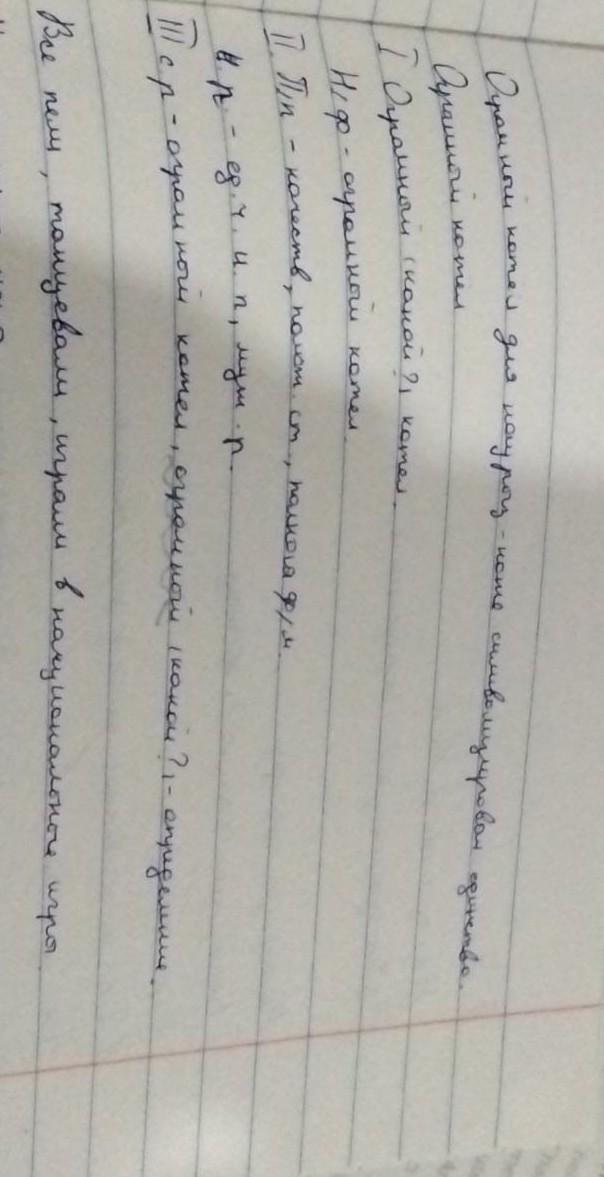 Огромный котел для наурыз-коже символизировал единство.
Огромный котел
I Огромный (какой?) котел.
Н/ф - огромный котел.
II. П/п - качеств, полож. ст, полная ф/м.
Н.р. - ед.ч. и.п, муж.р.
III с р - огромный котел, огромный (какой?) - определение.
Все пели, танцевали, играли в национальные игры